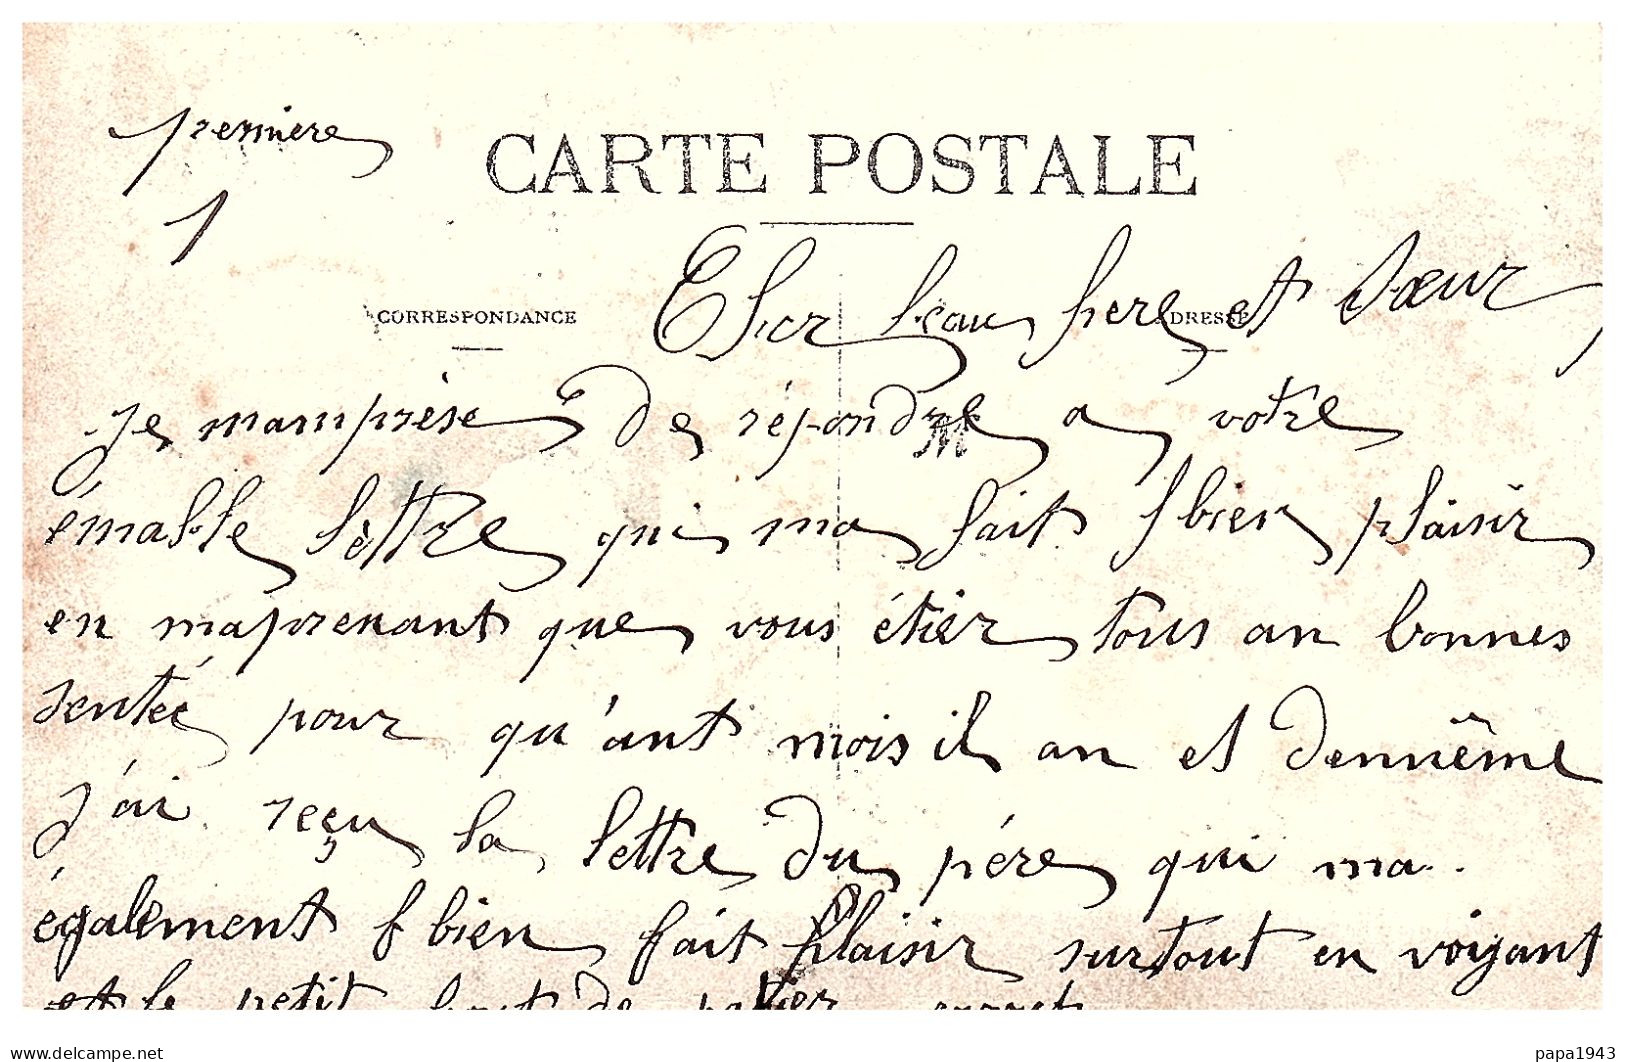 premiere
1
CARTE POSTALE
CORRESPONDANCE
ADRESSE
Cher beau frere et sœur
je mamprese de répondre a votre
émable lettre qui ma fait bien plaisir
en maprenant que vous étier tous an bonnes
sentée pour qu'ant mois il an et dennême
j'ai reçu la lettre du pére qui ma
également bien fait plaisir surtout en voiyant
et le petit bout de
www.delcampe.net
papa1943